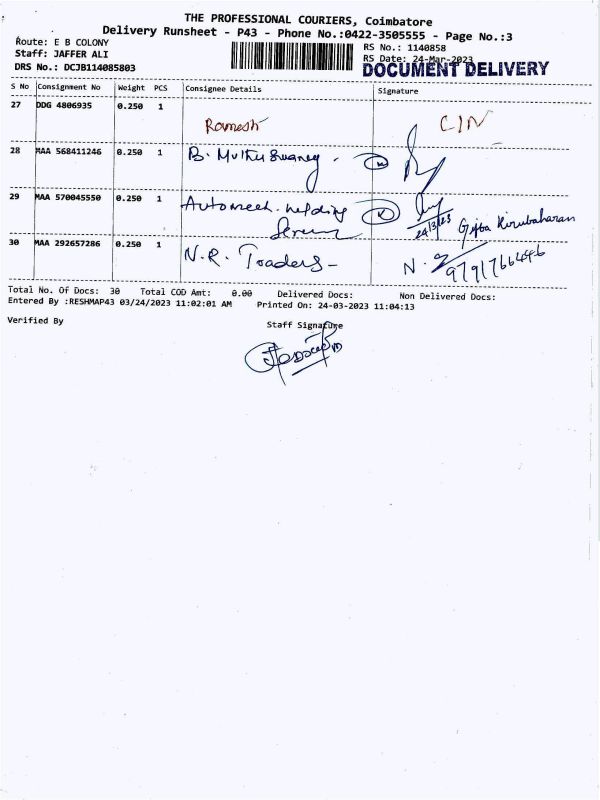 THE PROFESSIONAL COURIERS, Coimbatore
Delivery Runsheet - P43 - Phone No.:0422-3505555 - Page No.:3
Route: E B COLONY
Staff: JAFFER ALI
DRS No.: DCJB114085803
RS No.: 1140858
RS Date: 24-Mar-2023
DOCUMENT DELIVERY
S No Consignment No Weight PCS Consignee Details Signature
27 DDG 4806935 0.250 1
Ramesh CIN
28 MAA 568411246 0.250 1 B. Muthuswamy.
29 MAA 570045550 0.250 1 Automech. welding
24/3/23 Gifta Kirubaharan
30 MAA 292657286 0.250 1 N.R. Traders-
N. 9791766446
Total No. Of Docs: 30 Total COD Amt: 0.00 Delivered Docs: Non Delivered Docs:
Entered By :RESHMAP43 03/24/2023 11:02:01 AM Printed On: 24-03-2023 11:04:13
Verified By Staff Signature